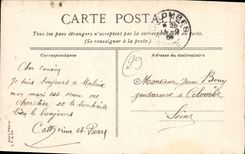 CARTE POSTALE
Tous les pays étrangers n'acceptent pas la correspondance
(Se renseigner à la poste)
Correspondance
Adresse du destinataire
29
Cher Cousin
Je suis toujours à
mon mari est venu me
chercher et te souhaite
bien le bonjours
Catherine et Pierre
Monsieur Jean Bouy
gendarme à Colombe
Seine